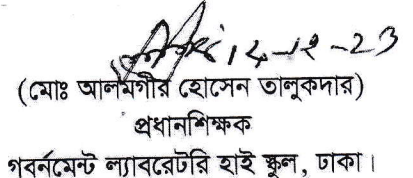 14-12-23
(মোঃ আলমগীর হোসেন তালুকদার)
প্রধানশিক্ষক
গবর্নমেন্ট ল্যাবরেটরি হাই স্কুল, ঢাকা।